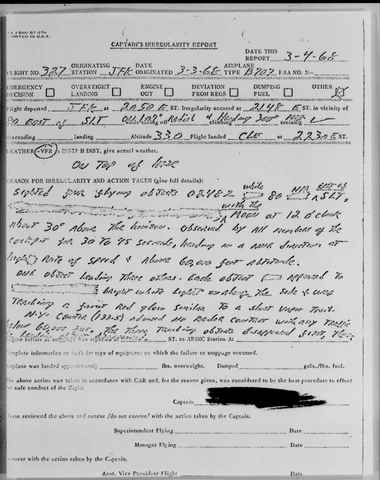 PRINTED IN U.S.A.
CAPTAIN'S IRREGULARITY REPORT
DATE THIS REPORT 3-4-68
FLIGHT NO. 387 ORIGINATING STATION JFK DATE ORIGINATED 3-3-68 AIRPLANE TYPE B707 FAA NO. N-
EMERGENCY DECISION OVERWEIGHT LANDING ENGINE OUT DEVIATION FROM REGS DUMPING FUEL OTHER
Flight departed JFK at 2050 E ST. Irregularity occurred at 2148 E ST. in vicinity of
East of SLT Radial Heading
Descending landing Altitude 330 Flight landed CLE at 2230 E ST.
WEATHER-VFR INST? If INST, give actual weather.
On Top of haze
REASON FOR IRREGULARITY AND ACTION TAKEN (give full details):
Sighted four flying objects 0248Z while 80 NM East of SLT,
with the Moon at 12 o'clock
about 30° above the horizon. Observed by all members of the
cockpit for 30 to 45 seconds, heading in a direction at
high Rate of speed & above 60,000 feet altitude.
One object leading three others. Each object appeared to
bright white light along the side & was
Trailing a faint Red glow similar to a short vapor trail.
N.Y. Center (132.5) advised no Radar Contact with any traffic
below 60,000 feet. The three trailing objects disappeared first, then
ST. to ARINC Station At
Complete information on back for type of equipment on which the failure or stoppage occurred.
Airplane was landed approximately lbs. overweight. Dumped gals./lbs. fuel.
The above action was taken in accordance with CAR and, for the reason given, was considered to be the best procedure to effect
safe conduct of the flight.
Captain
Have reviewed the above and concur /do not concur/ with the action taken by the Captain.
Superintendent Flying
Manager Flying
Concur with the action taken by the Captain.
Asst. Vice President Flight Date